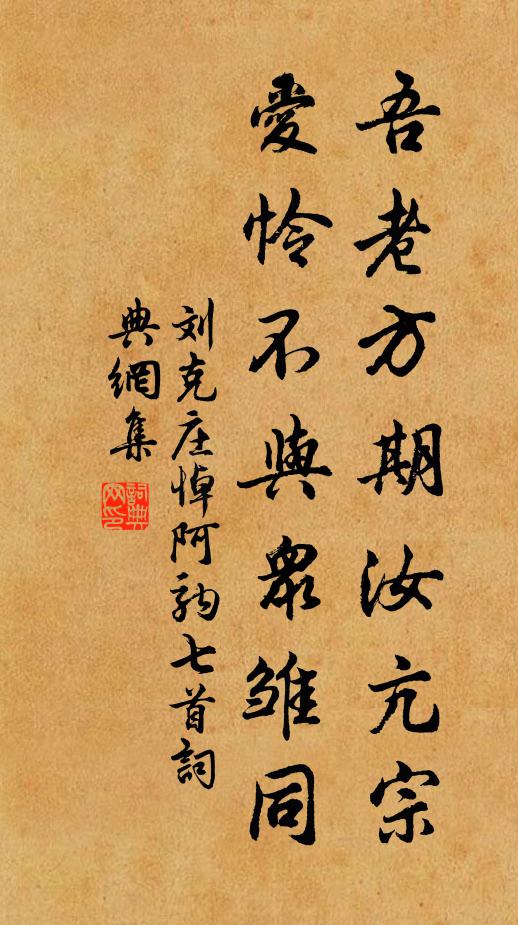 吾老方期汝亢宗
愛怜不與衆雏同
刘克庄悼阿駒七首詞
典網集
詞典
网印